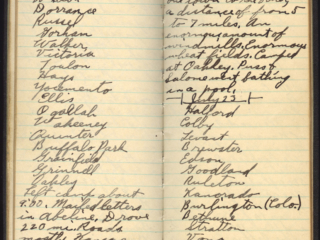 Dorrance
Russel
Gorham
Walker
Victoria
Toulon
Hays
Yocemento
Ellis
Ogallah
Wakeeney
Quinter
Buffalo Park
Grainfield
Grinnell
Oakley
Left camp about
9:00. Mailed letters
in Abeline. Drove
220 mi. Roads
a distance of from 5
to 7 miles. An
enormous amount of
windmills. Enormous
wheat fields. Camped
at Oakley. Puss &
Salome went bathing
in a pool.
July 23
Halford
Colby
Levant
Brewster
Edson
Goodland
Ruleton
Kanorado
Burlington (Colo.)
Bethune
Stratton
Vona